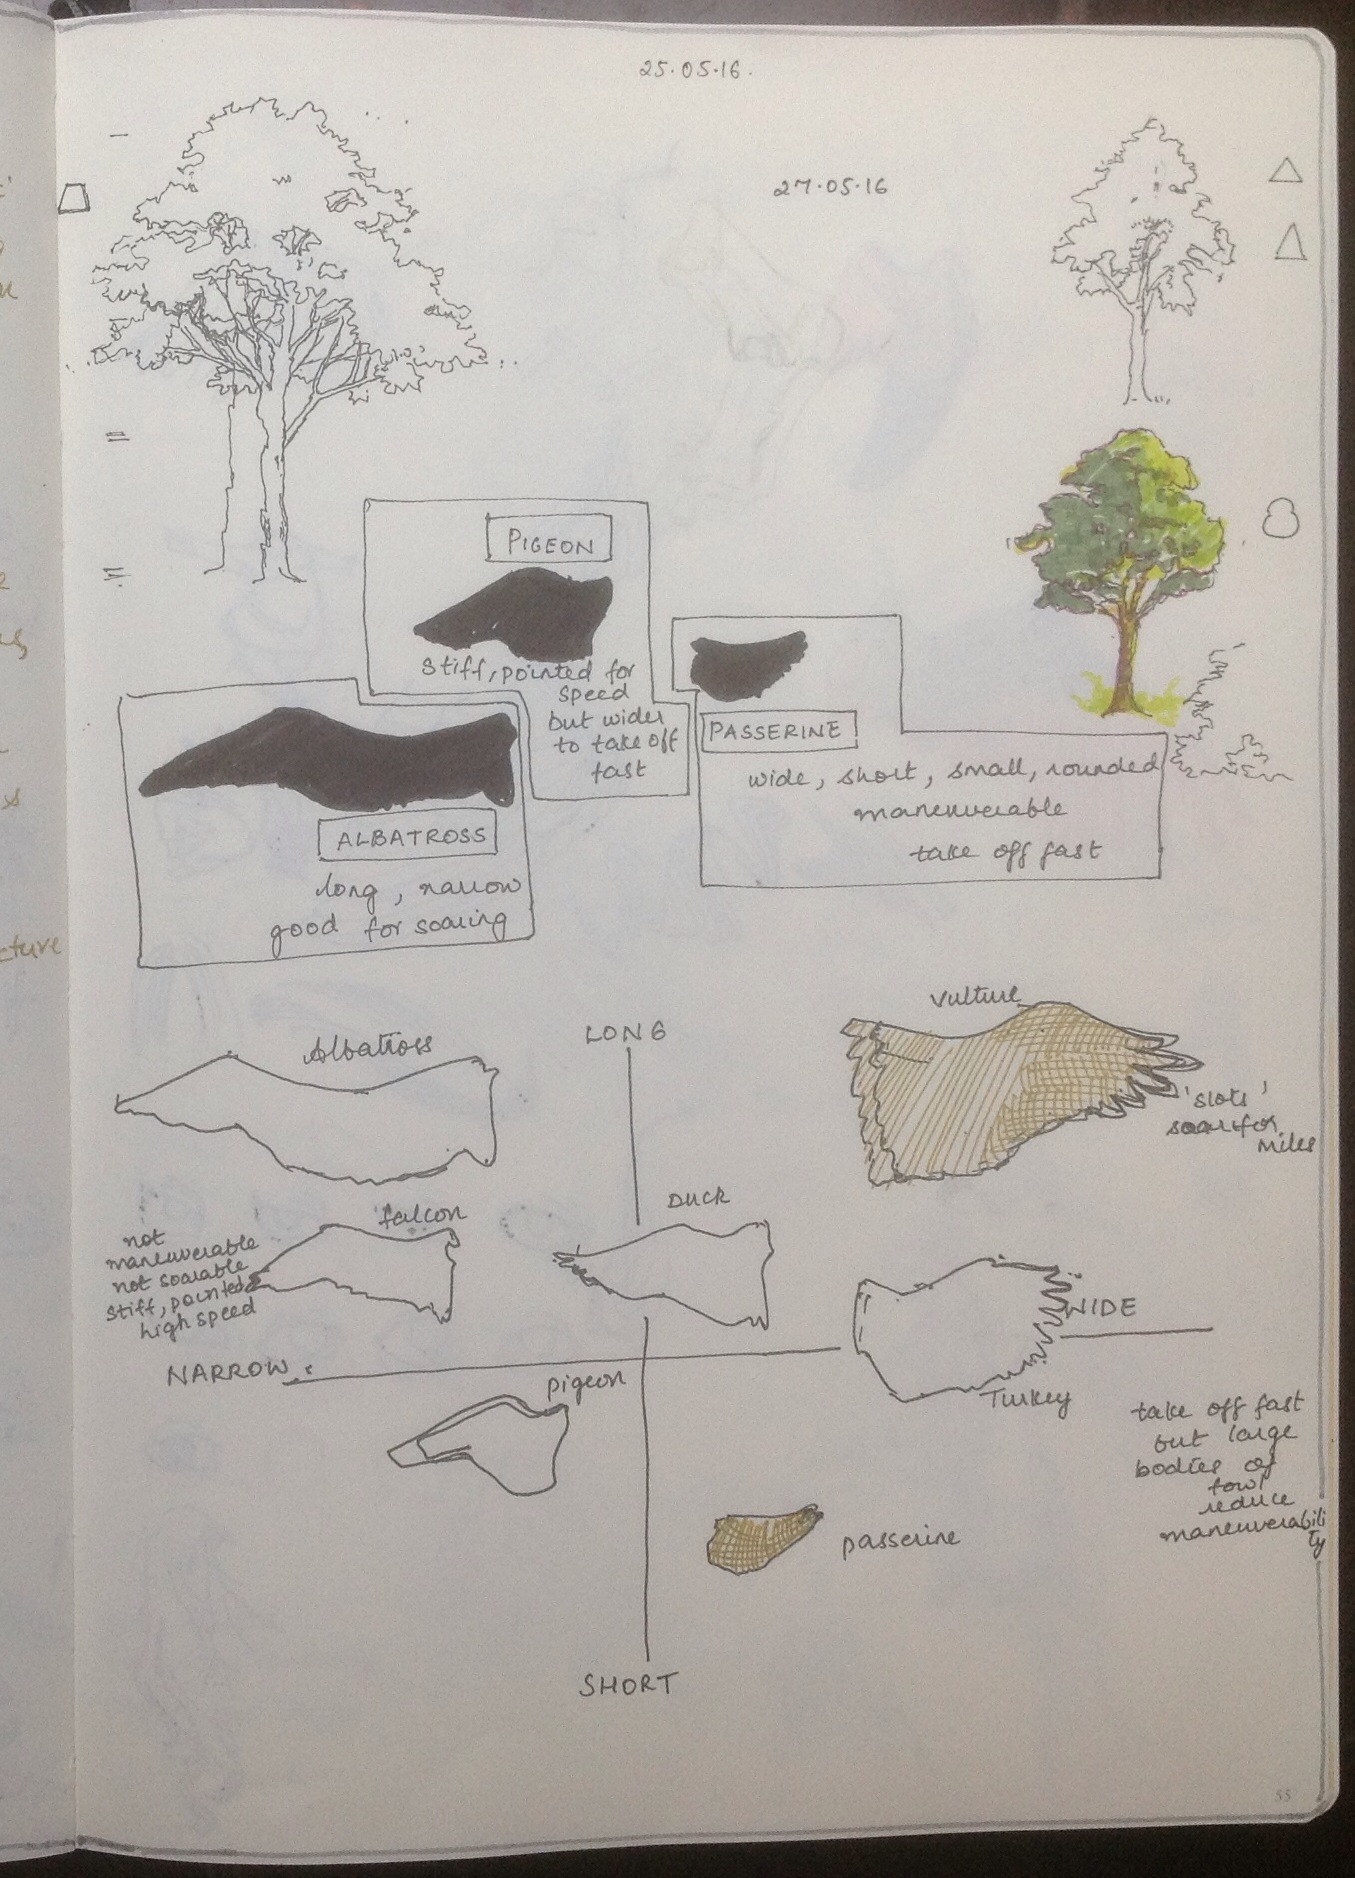 25.05.16.
27.05.16
PIGEON
stiff, pointed for
speed
but wider
to take off
fast
PASSERINE
wide, short, small, rounded
maneuverable
take off fast
ALBATROSS
long, narrow
good for soaring
cture
Albatross
LONG
vulture
'slots'
soar for
miles
falcon
not
maneuverable
not soarable
stiff, pointed
high speed
DUCK
WIDE
NARROW
pigeon
Turkey
take off fast
but large
bodies of
fowl
reduce
maneuverabili
ty
passerine
SHORT
55